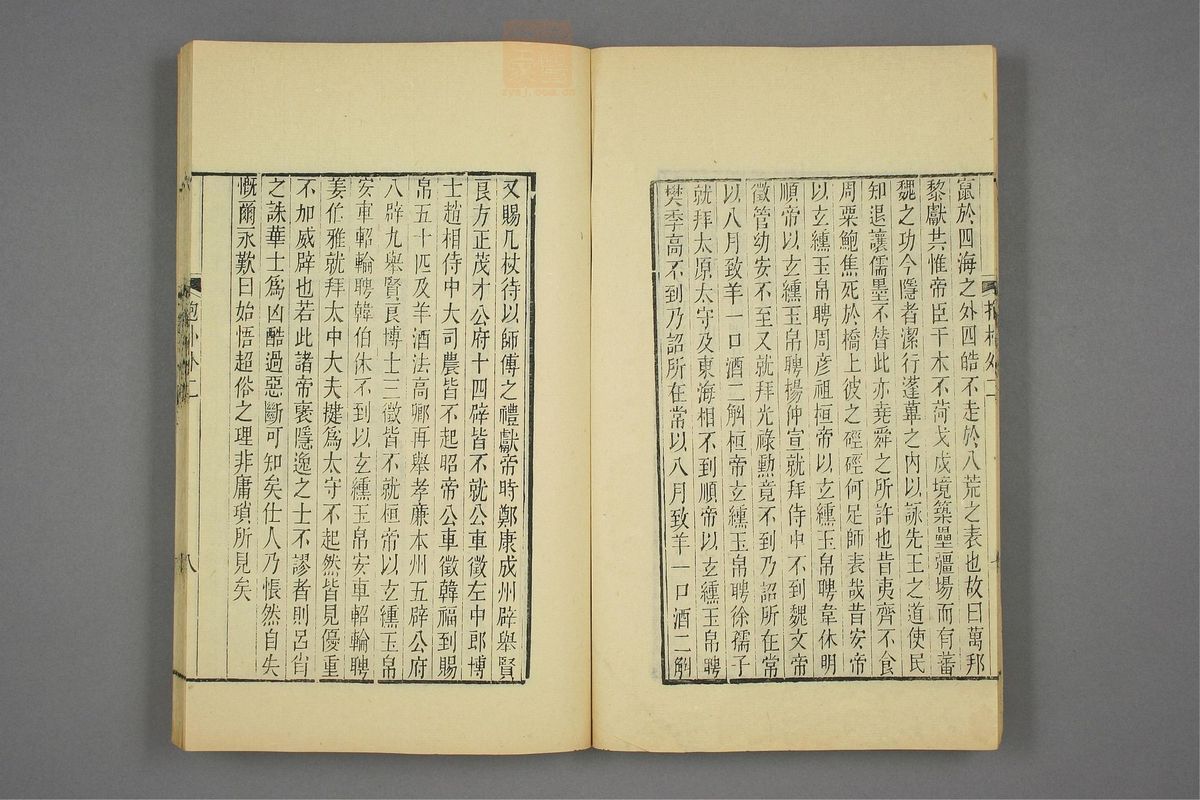 竄於四海之外四皓不走於八荒之表也故曰萬邦
黎獻共惟帝臣干木不荷戈戍境築壘疆場而有蕃
魏之功今隱者潔行蓬蓽之內以詠先王之道使民
知退讓儒墨不替此亦堯舜之所許也昔夷齊不食
周粟鮑焦死於橋上彼之硜硜何足師表哉昔安帝
以玄纁玉帛聘周彥祖桓帝以玄纁玉帛聘韋休明
順帝以玄纁玉帛聘揚仲宣就拜侍中不到魏文帝
徵管幼安不至又就拜光祿勳竟不到乃詔所在常
以八月致羊一口酒二斛桓帝玄纁玉帛聘徐孺子
就拜太原太守及東海相不到順帝以玄纁玉帛聘
樊季高不到乃詔所在常以八月致羊一口酒二斛
又賜几杖待以師傅之禮獻帝時鄭康成州辟舉賢
良方正茂才公府十四辟皆不就公車徵左中郎博
士趙相侍中大司農皆不起昭帝公車徵韓福到賜
帛五十匹及羊酒法高卿再舉孝廉本州五辟公府
八辟九舉賢良博士三徵皆不就桓帝以玄纁玉帛
安車軺輪聘韓伯休不到以玄纁玉帛安車軺輪聘
姜伯雅就拜太中大夫犍為太守不起然皆見優重
不加威辟也若此諸帝褒隱逸之士不謬者則呂尚
之誅華士為凶酷過惡斷可知矣仕人乃悵然自失
慨爾永歎曰始悟超俗之理非庸瑣所見矣
八